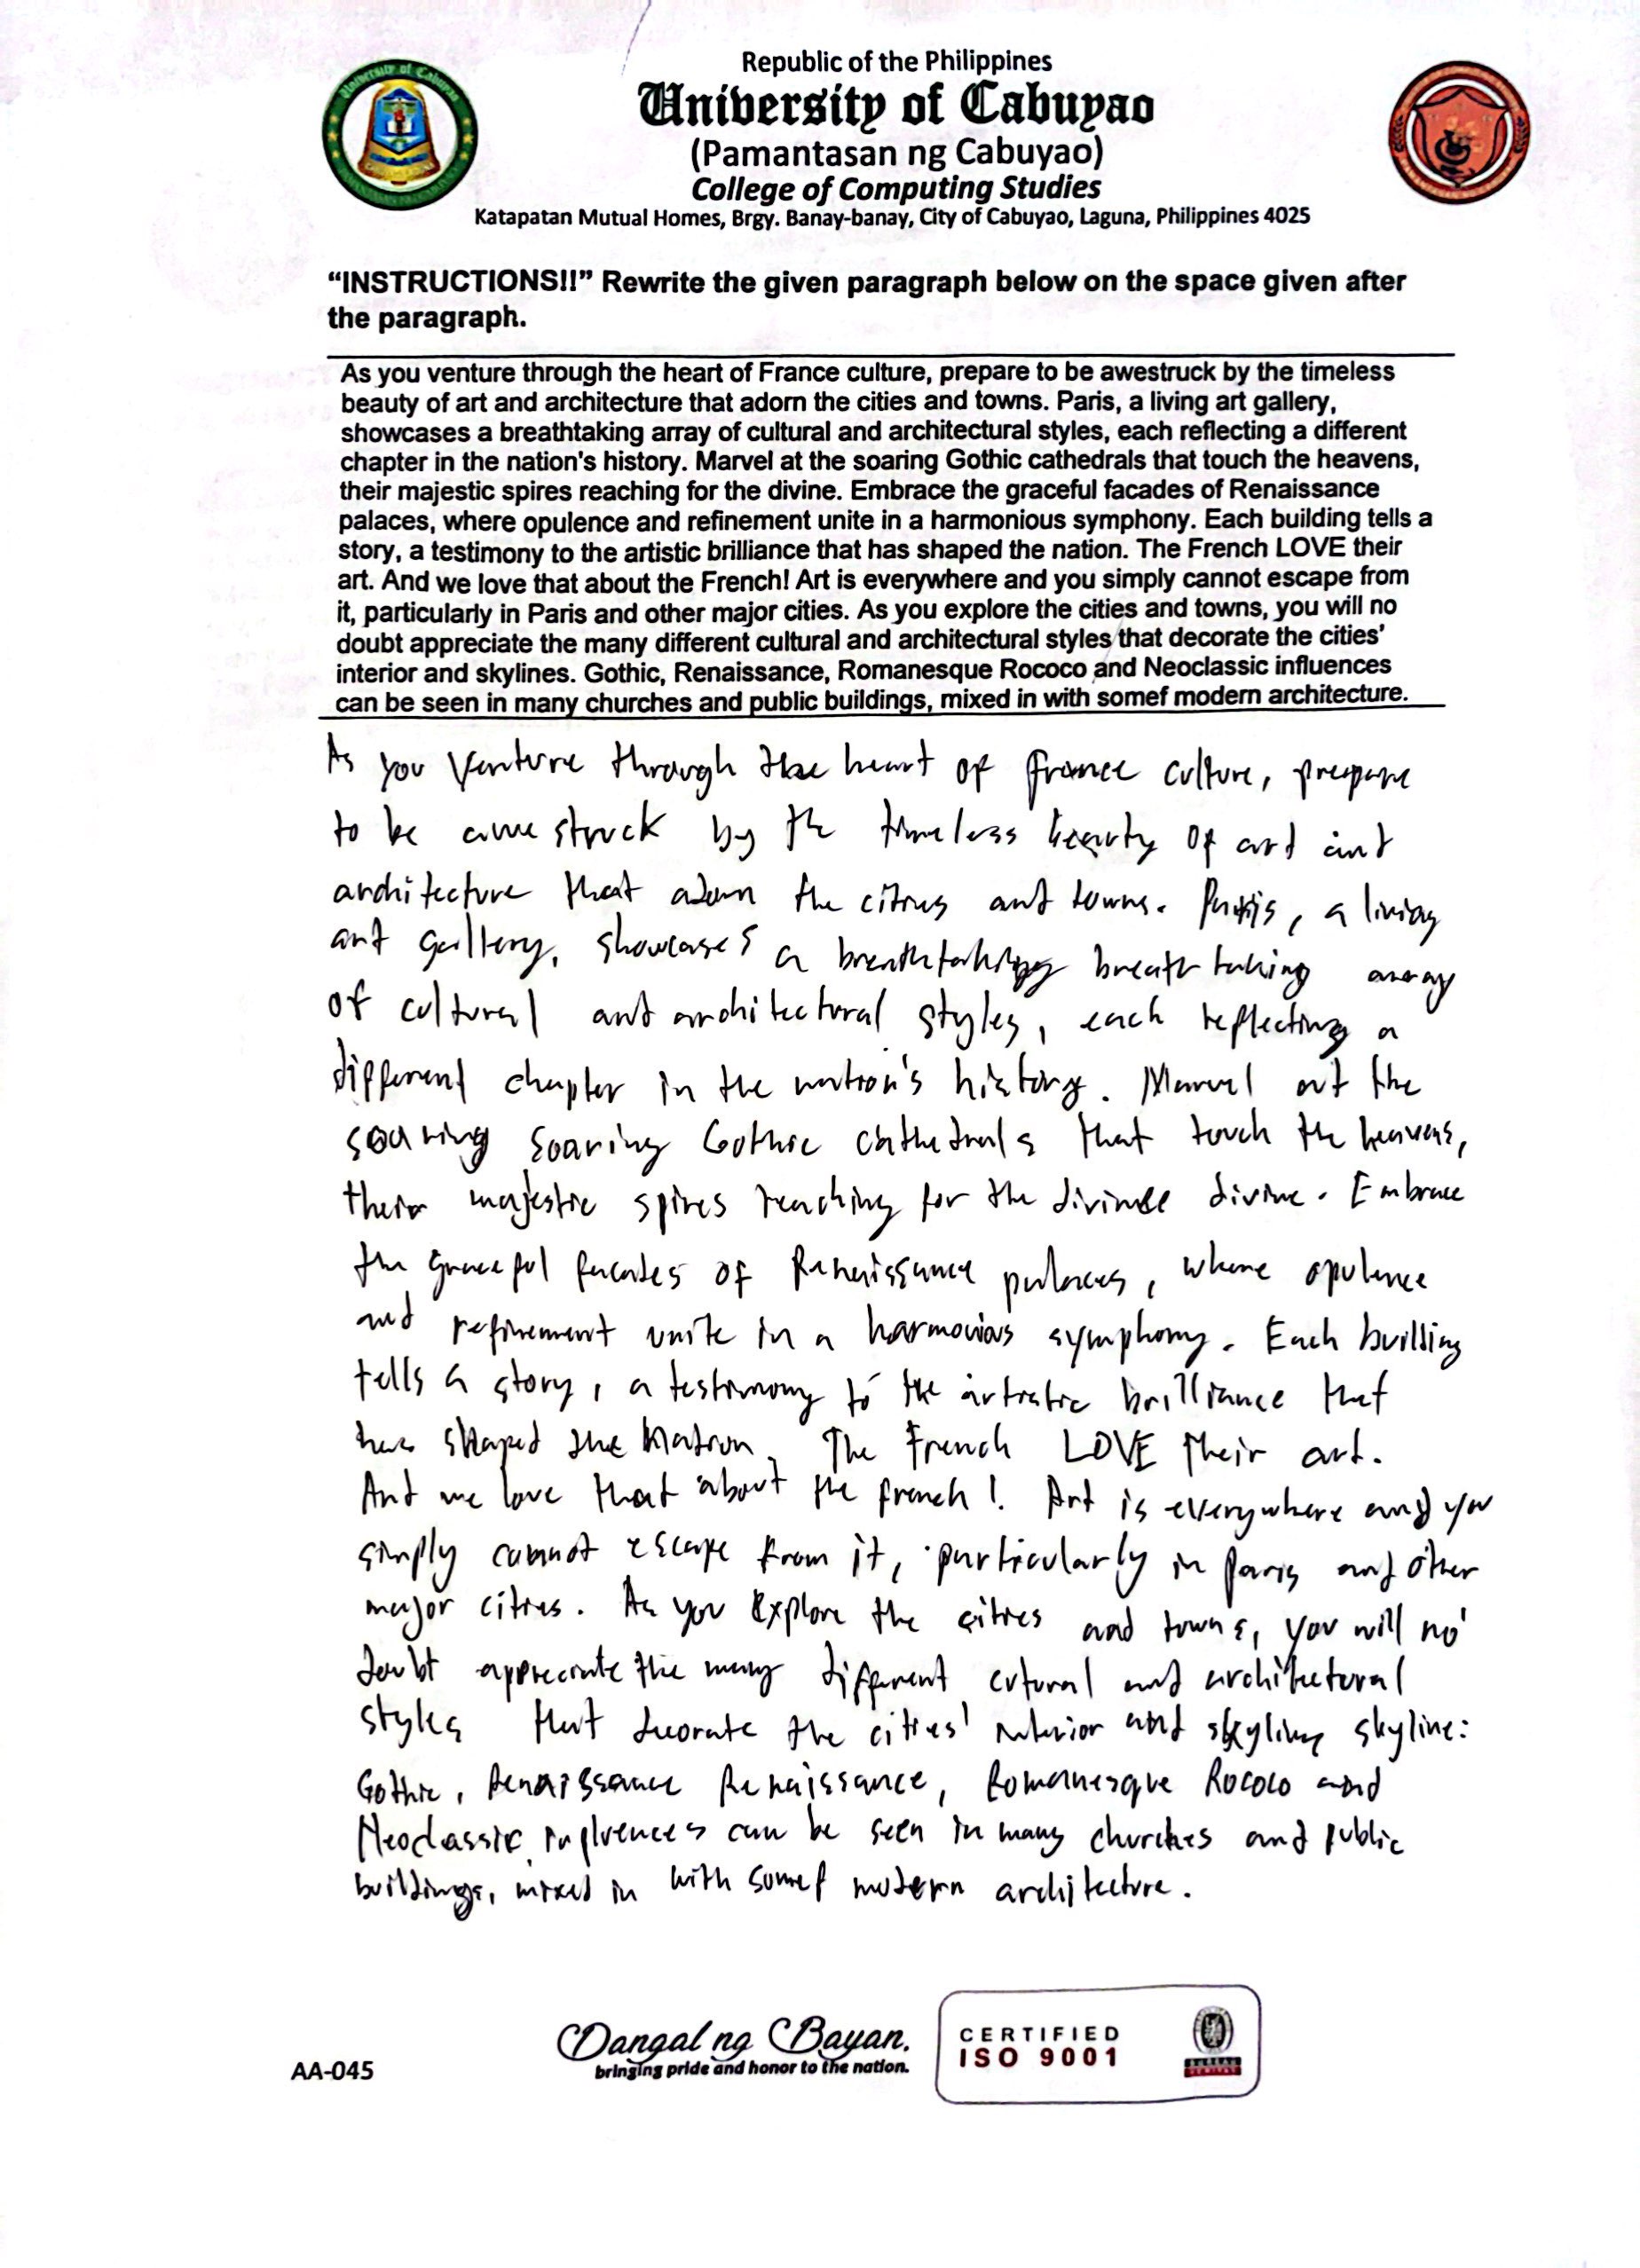 Republic of the Philippines
University of Cabuyao
(Pamantasan ng Cabuyao)
College of Computing Studies
Katapatan Mutual Homes, Brgy. Banay-banay, City of Cabuyao, Laguna, Philippines 4025
“INSTRUCTIONS!!” Rewrite the given paragraph below on the space given after
the paragraph.
As you venture through the heart of France culture, prepare to be awestruck by the timeless
beauty of art and architecture that adorn the cities and towns. Paris, a living art gallery,
showcases a breathtaking array of cultural and architectural styles, each reflecting a different
chapter in the nation's history. Marvel at the soaring Gothic cathedrals that touch the heavens,
their majestic spires reaching for the divine. Embrace the graceful facades of Renaissance
palaces, where opulence and refinement unite in a harmonious symphony. Each building tells a
story, a testimony to the artistic brilliance that has shaped the nation. The French LOVE their
art. And we love that about the French! Art is everywhere and you simply cannot escape from
it, particularly in Paris and other major cities. As you explore the cities and towns, you will no
doubt appreciate the many different cultural and architectural styles that decorate the cities’
interior and skylines. Gothic, Renaissance, Romanesque Rococo and Neoclassic influences
can be seen in many churches and public buildings, mixed in with somef modern architecture.
As you venture through the heart of france culture, prepare
to be awestruck by the timeless beauty of art and
architecture that adorn the cities and towns. Paris, a living
art gallery, showcases a breathtaking breathtaking array
of cultural and architectural styles, each reflecting a
different chapter in the nation's history. Marvel at the
soaring soaring Gothic cathedrals that touch the heavens,
their majestic spires reaching for the divine divine. Embrace
the graceful facades of Renaissance palaces, where opulence
and refinement unite in a harmonious symphony. Each building
tells a story, a testimony to the artistic brilliance that
has shaped the Nation. The French LOVE their art.
And we love that about the french! Art is everywhere and you
simply cannot escape from it, particularly in paris and other
major cities. As you explore the cities and towns, you will no
doubt appreciate the many different cutural and architectural
styles that decorate the cities' interior and skyling skyline:
Gothic, Renaissance Renaissance, Romanesque Rococo and
Neoclassic influences can be seen in many churches and public
buildings, mixed in with somef modern architecture.
Dangal ng Bayan.
bringing pride and honor to the nation.
AA-045
CERTIFIED
ISO 9001
BUREAU
VERITAS